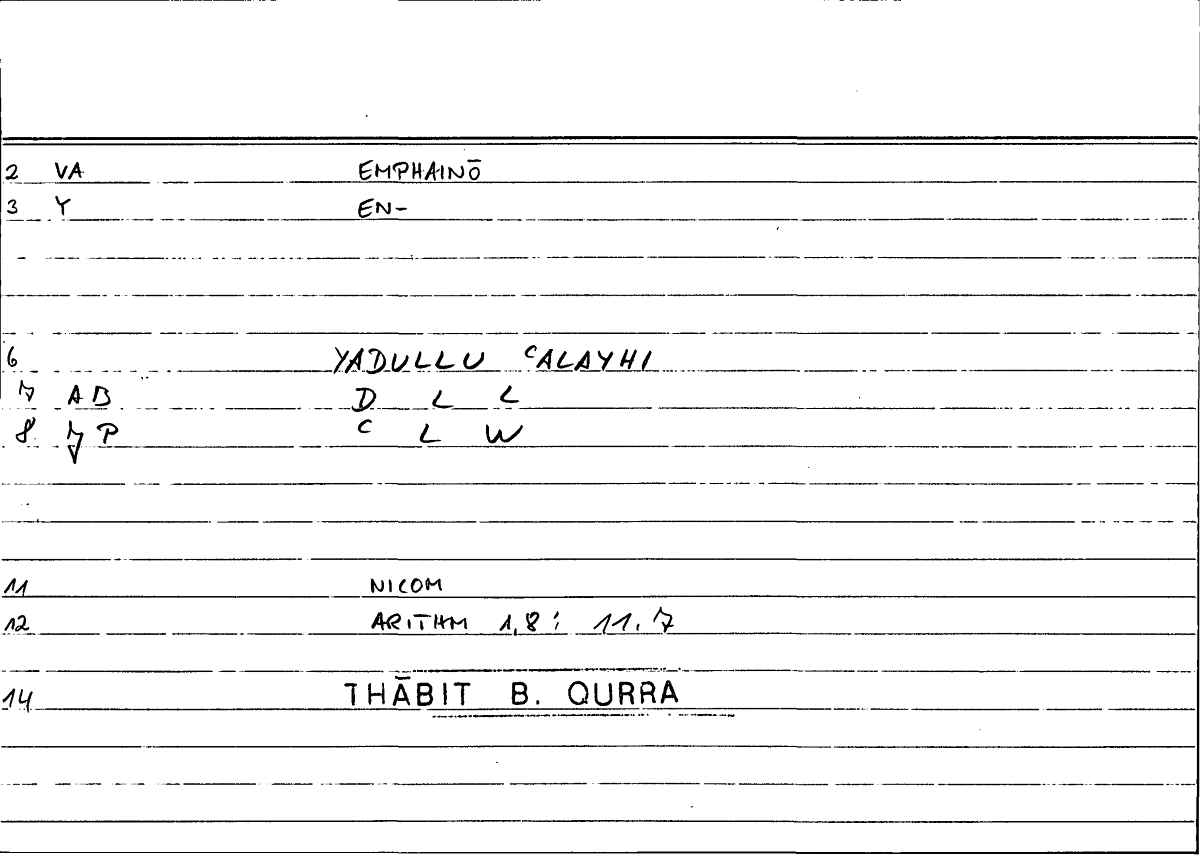 2 VA EMPHAINŌ
3 Y EN-
6 YADULLU ᶜALAYHI
7 AB D L L
8 P ᶜ L W
11 NICOM
12 ARITHM 1,8; 11.7
14 THĀBIT B. QURRA